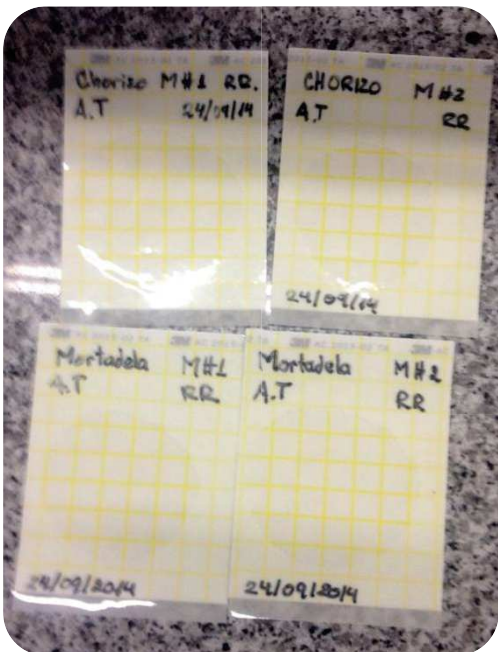 3M AC 2015-02 TA
Chorizo M#1 RR.
A.T 24/09/14
CHORIZO M#2
A.T RR
24/09/14
Mortadela M#1
A.T RR
24/09/2014
Mortadela M#2
A.T RR
24/09/2014